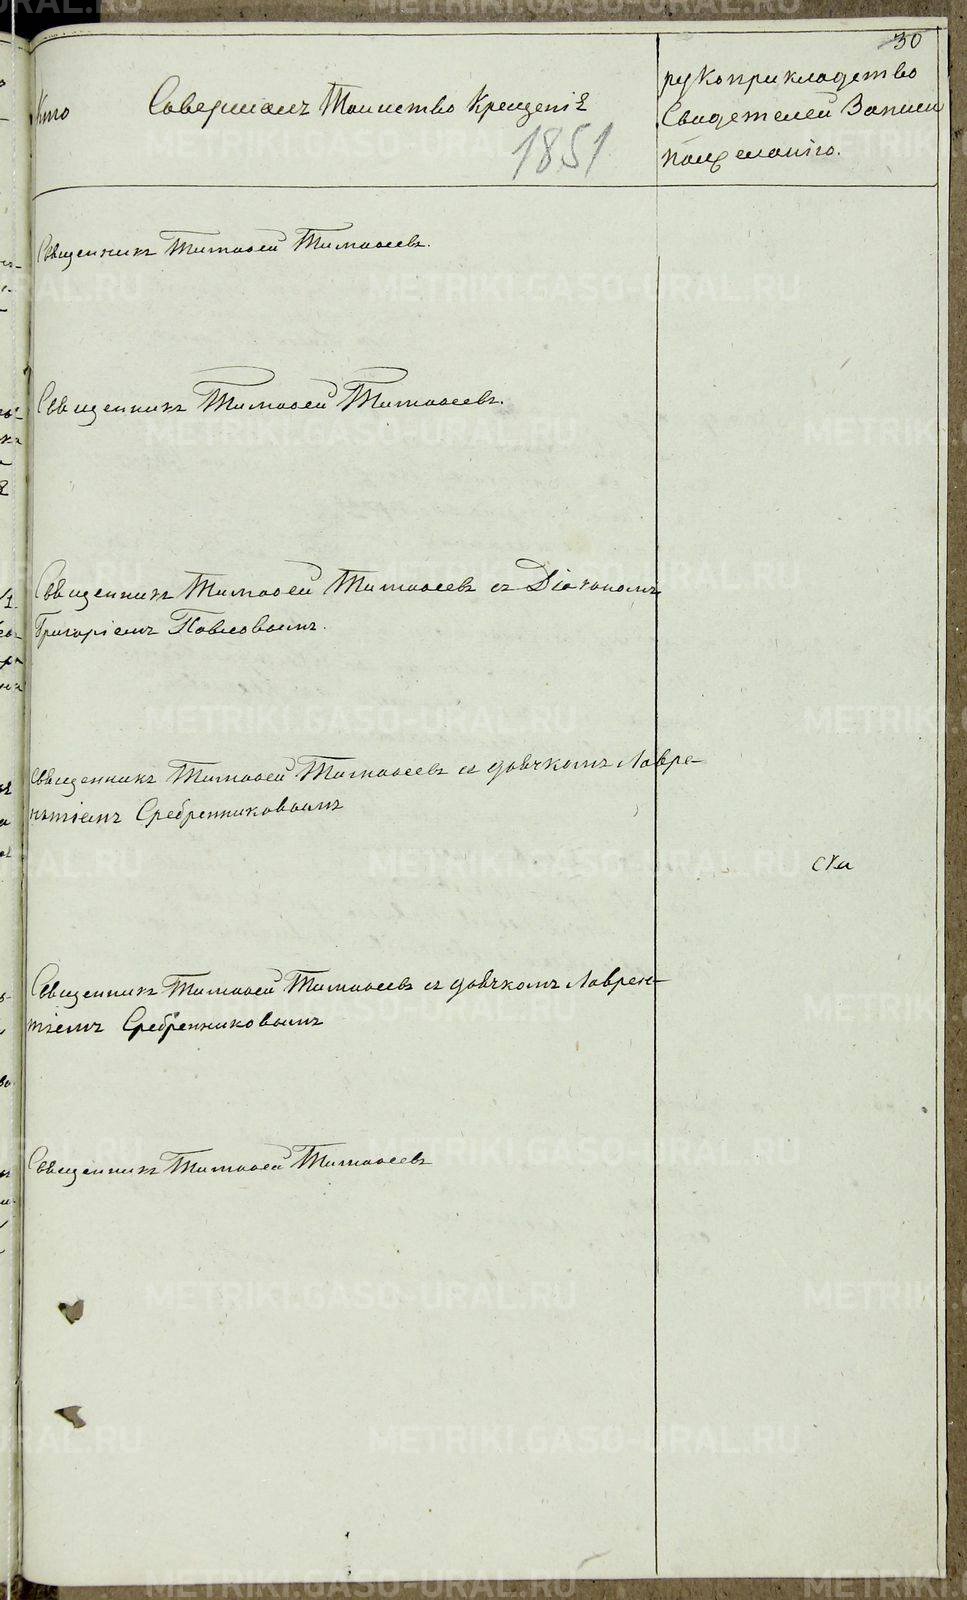 30
Кто Совершалъ Таинство Крещенія
1851
рукоприкладство
Свидетелей Записи
по желанію.
Священникъ Тимоѳей Тимоѳеевъ.
Священникъ Тимоѳей Тимоѳеевъ.
Священникъ Тимоѳей Тимоѳеевъ съ Діакономъ
Григоріемъ Павловымъ.
Священникъ Тимоѳей Тимоѳеевъ съ дьячкомъ Лавре-
нтіемъ Сребренниковымъ
Священникъ Тимоѳей Тимоѳеевъ съ дьячкомъ Лаврен-
тіемъ Сребренниковымъ
Священникъ Тимоѳей Тимоѳеевъ
METRIKI.GASO-URAL.RU